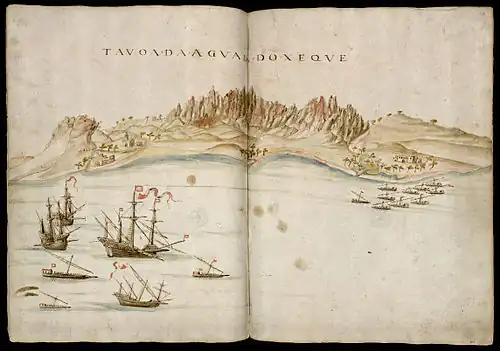 TAVOA·DA·AGVA·DO·XEQVE